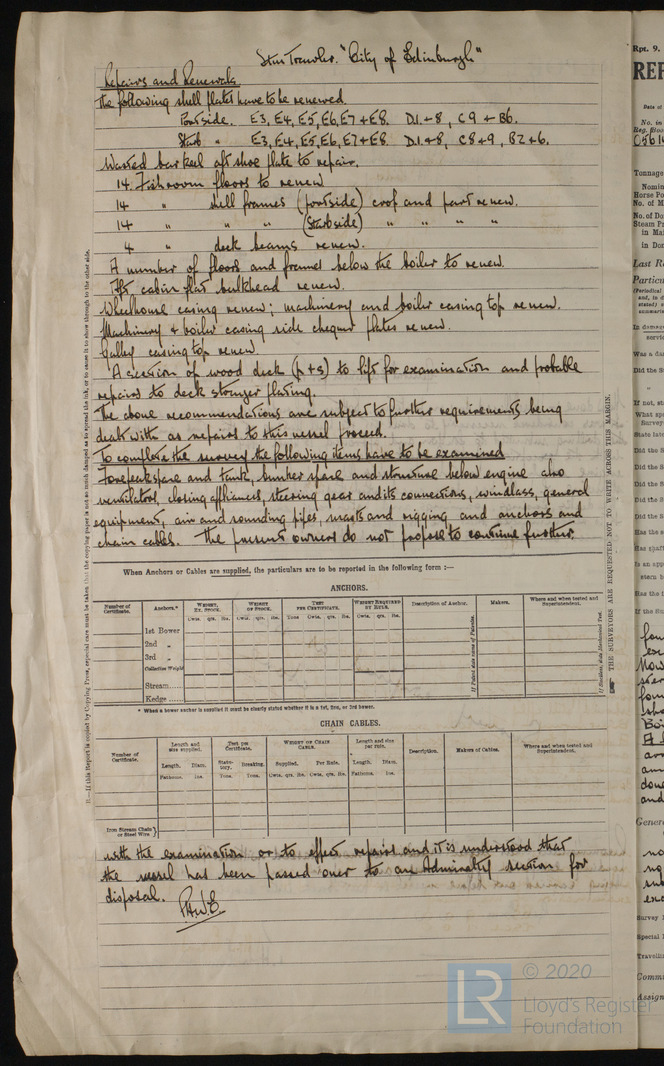 Stm Trawler. "City of Edinburgh"
Repairs and Renewals
The following shell plates have to be renewed.
Portside. E3, E4, E5, E6, E7 + E8. D.1 + 8, C9 + B6.
Starb " E3, E4, E5, E6, E7 + E8. D.1 + 8, C8 + 9, B2 + 6.
Wasted bar keel aft shoe plate to repair.
14. Fishroom floors to renew
14 " shell frames (portside) crop and part renew.
14 " " " (Starbside) " " " "
4 " deck beams renew.
A number of floors and frames below the boiler to renew.
Aft cabin flat bulkhead renew.
Wheelhouse casing renew; machinery and boiler casing top renew.
Machinery + boiler casing side chequer plates renew.
Galley casing top renew.
A section of wood deck (p + s) to lift for examination and probable
repairs to deck stringer plating.
The above recommendations are subject to further requirements being
dealt with as repairs to this vessel proceed.
To complete the survey the following items have to be examined
Forepeak space and tank, bunker space and structure below engine also
ventilators, closing appliances, steering gear and its connections, windlass, general
equipment, air and sounding pipes, masts and rigging and anchors and
chain cables. The present owners do not propose to continue further
When Anchors or Cables are supplied, the particulars are to be reported in the following form :—
ANCHORS.
Number of Certificate. Anchors.* WEIGHT, EX. STOCK. WEIGHT OF STOCK. TEST PER CERTIFICATE. WEIGHT REQUIRED BY RULE. Description of Anchor. Makers. Where and when tested and Superintendent.
Cwts. qrs. lbs. Cwts. qrs. lbs. Tons Cwts. qrs. lbs. Cwts. qrs. lbs.
1st Bower
2nd "
3rd "
Collective Weight
Stream
Kedge
* When a bower anchor is supplied it must be clearly stated whether it is a 1st, 2nd, or 3rd bower.
CHAIN CABLES.
Number of Certificate. Length and size supplied. Test per Certificate. WEIGHT OF CHAIN CABLE. Length and size per rule. Description. Makers of Cables. Where and when tested and Superintendent.
Length. Diam. Statutory. Breaking. Supplied. Per Rule. Length. Diam.
Fathoms. Ins. Tons. Tons. Cwts. qrs. lbs. Cwts. qrs. lbs. Fathoms. Ins.
Iron Stream Chain or Steel Wire
with the examination or to effect repairs and it is understood that
the vessel has been passed over to an Admiralty section for
disposal.
THE SURVEYORS ARE REQUESTED NOT TO WRITE ACROSS THIS MARGIN.
Rpt. 9.
© 2020
LR
Lloyd's Register
Foundation